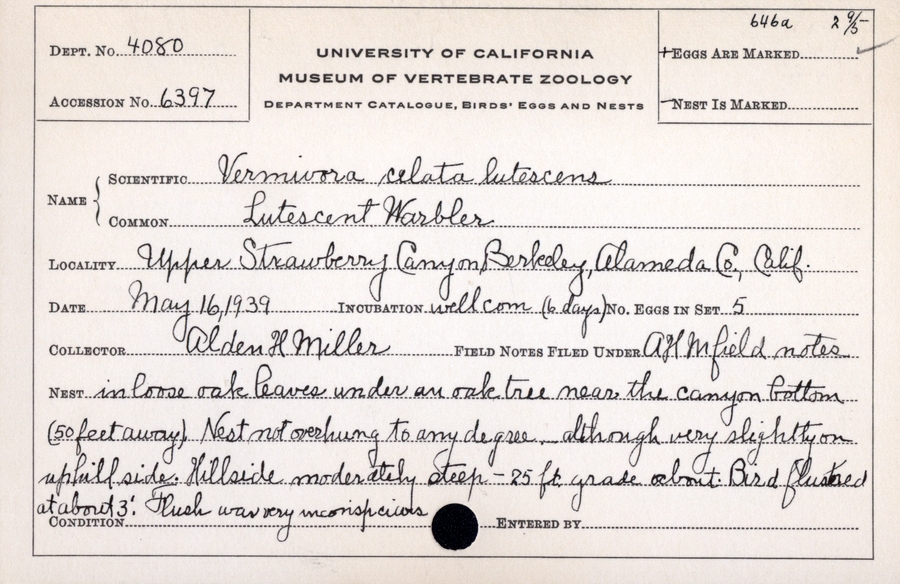 646a 2 9/5-
DEPT. No. 4080
UNIVERSITY OF CALIFORNIA
+EGGS ARE MARKED
MUSEUM OF VERTEBRATE ZOOLOGY
ACCESSION No. 6397
DEPARTMENT CATALOGUE, BIRDS' EGGS AND NESTS
-NEST IS MARKED
NAME { SCIENTIFIC Vermivora celata lutescens
COMMON Lutescent Warbler
LOCALITY Upper Strawberry Canyon, Berkeley, Alameda Co., Calif.
DATE May 16, 1939 INCUBATION well com (6 days) No. EGGS IN SET 5
COLLECTOR Alden H Miller FIELD NOTES FILED UNDER AHM field notes
NEST in loose oak leaves under an oak tree near the canyon bottom
(50 feet away). Nest not overhung to any degree although very slightly on
uphill side. Hillside moderately steep - 25 ft. grade about. Bird flushed
at about 3'. Flush was very inconspicuous
CONDITION ENTERED BY